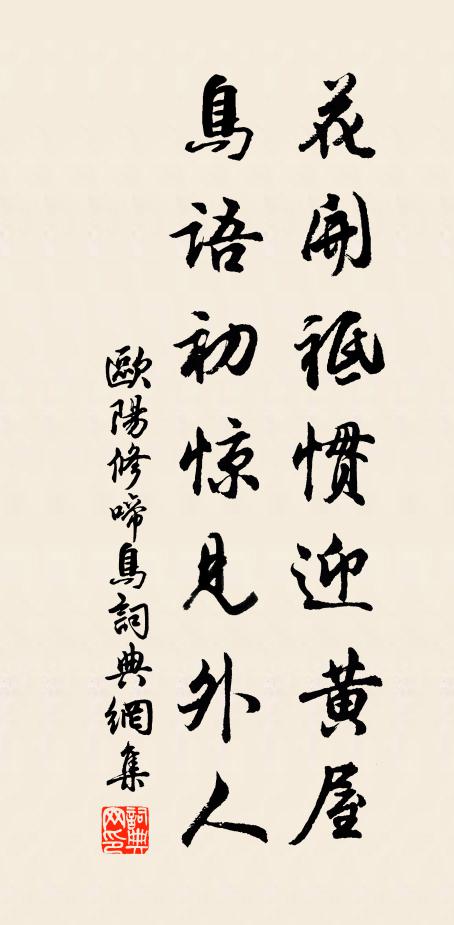 花開祗慣迎黃屋
鳥語初惊見外人
歐陽修啼鳥詞典網集
詞典网印